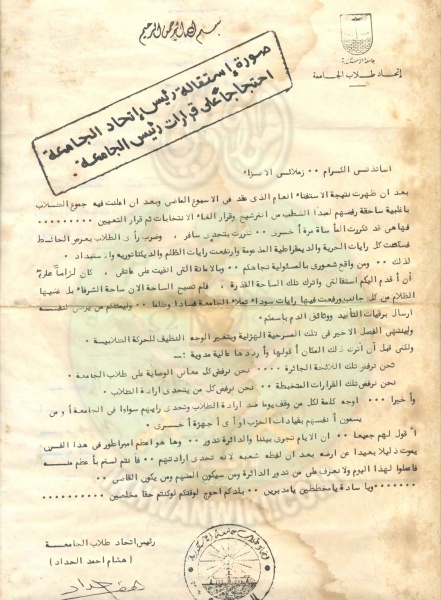 بسم الله الرحمن الرحيم
جامعة الاسكندرية
اتحاد طلاب الجامعة
صورة إستقالة رئيس إتحاد الجامعة
احتجاجاً على قرارات رئيس الجامعة
اساتذتى الكرام .. زملائى الاعزاء
بعد ان ظهرت نتيجة الاستفتاء العام الذى عقد فى الاسبوع الماضى وبعد ان اعلنت فيه جموع الطلاب
باغلبية ساحقة رفضهم لمبدأ الشطب من الترشيح وقرار الغاء الانتخابات ثم قرار التعيين ..........
فها هى قد تكررت المأساة مرة أخرى .. تكررت بتحدى سافر . وضرب رأى الطلاب بعرض الحائط
كل رايات الحرية والديمقراطية وارتفعت رايات الظلم والديكتاتورية
لذلك .. ومن واقع شعورى بالمسئولية تجاهكم .. وبالامانة التى القيت على عاتقى . كان لزاما علىّ
أن أقدم اليكم استقالتى واترك تلك الساحة القذرة . فلم تصبح الساحة الان ساحة الشرفاء بل
الظلام من كل جانب ورفعت فيها رايات سوداء تملأ الجامعة فسادا وظلما ..
ارسال برقيات التأييد ووثائق الدم باسمكم .
وينتهى الفصل الاخير فى تلك المسرحية الهزلية ويتغير الوجه النظيف للحركة الطلابية .
ولكنى قبل أن أترك ذلك المكان أقولها وأرددها عالية مدوية :ــ
نحن نرفض تلك اللائحة الجائرة .... نحن نرفض كل معانى الوصاية على طلاب الجامعة .
نحن نرفض تلك القرارات المتخبطة .. نحن نرفض كل من يتحدى ارادة الطلاب .
وأخيرا ... اوجه كلمة لكل من وقف يوما ضد ارادة الطلاب وتحدى رأيهم سواء فى الجامعة أو من
يسمون أنفسهم بقيادات الحزب أو أى أجهزة أخرى .
أقول لهم جميعا .. ان الايام تجرى بيننا والدائرة تدور .. وها هو أعظم امبراطور فى هذا القرن
يموت ذليلا بعيدا عن ارضه بعد ان لفظه شعبه لانه تحدى أرادتهم .. فأنتم لستم بأعظم منه
فاعملوا لهذا اليوم ولا نعرف على من تدور الدائرة ومن سيكون المتهم ومن يكون القاضى ..
..... ويا سادة يا مخططين يا مدبرين .. بلدكم احوج لوقفتكم لو كنتم حقا مخلصين ..........
رئيس اتحاد طلاب الجامعة
( هشام احمد الحداد )